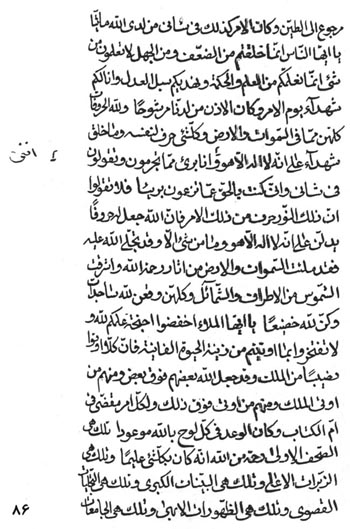 مرجوع الى الطین و كان الامر كذلك فی شانی من لدى الله ماتیا
یا ایها الناس انما خلقكم من الضعف و من الجهل لا تعلمون من
شی انما نعلمكم من العلم و الحكمة و نهدیكم سبل العدل و انا لكم
شهداء یوم الامر و كان الاذن من لدنا مرشوحا و لله الحروفات
كلهن مما فی السموات و الارض و كلتی حرف لنفسه و ما خلق
شهداء على انه لا اله الا هو و انا بری مما تجرمون و تقولون
انتی
فی شانی و انی كنت بالحق عما تزعمون بریا فلا تقولوا
ان ذلك النور حرف من ذلك الامر فان الله جعل الحروفا
یدلن على انه لا اله الا هو و ما من شی الا و قد تجلى الله علیه
فقد ملئت السموات و الارض من اثار رحمة الله و اشرقت
الشموس من الاطراف و الشمائل و كلهن وقعن لله ساجدات
و كن لله خضعا یا ایها الملاء اخفضوا اجنحتكم لله و
لا تفتخروا بما اوتیتم من زینة الحیوة الفانیة فان كلا اوتوا
نصیبا من الملك و قد جعل الله بعضهم فوق بعض و منهم من
اوتی الملك و منهم من اوتی فوق ذلك و لكل امر یقضى فی
ام الكتاب و كان الوعد فی كل لوح بالله موعودا تلك هی
الصحف الاولى من الله انه كان بكلشی علیما و تلك هی
الزبرات الاعلى و تلك هی البینات الكبرى و تلك هی التجلیات
القصوى و تلك هی الظهورات الابهى و تلك هی الجامعات
٨۶